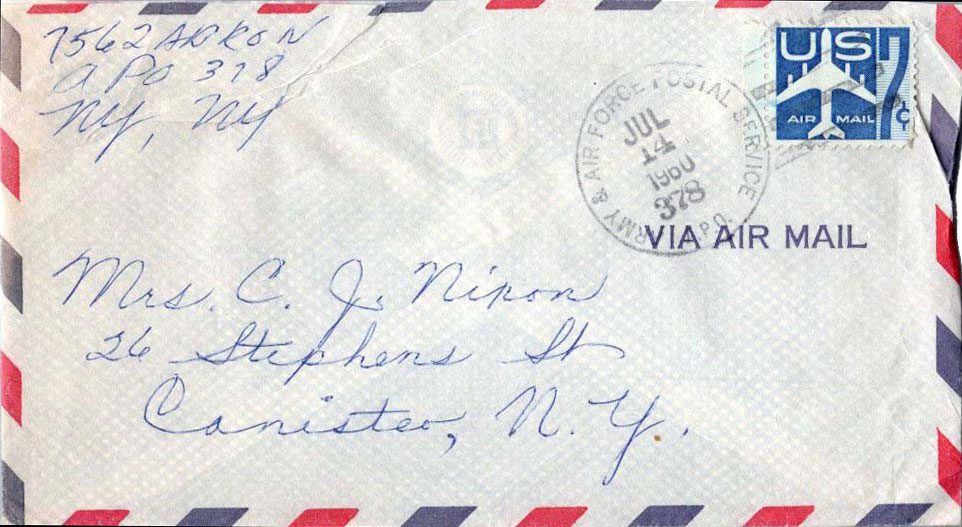 7562 AKRON
APO 378
NY, NY
US
AIR MAIL
7¢
ARMY & AIR FORCE POSTAL SERVICE
JUL
14
1960
378
A.P.O.
VIA AIR MAIL
Mrs. C. J. Nixon
26 Stephens St
Canisteo, N.Y.